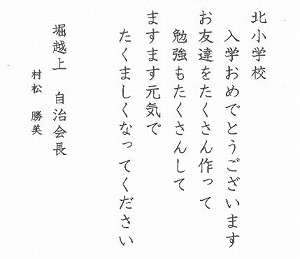 北小学校
入学おめでとうございます
お友達をたくさん作って
勉強もたくさんして
ますます元気で
たくましくなってください
堀越上 自治会長
村松 勝美